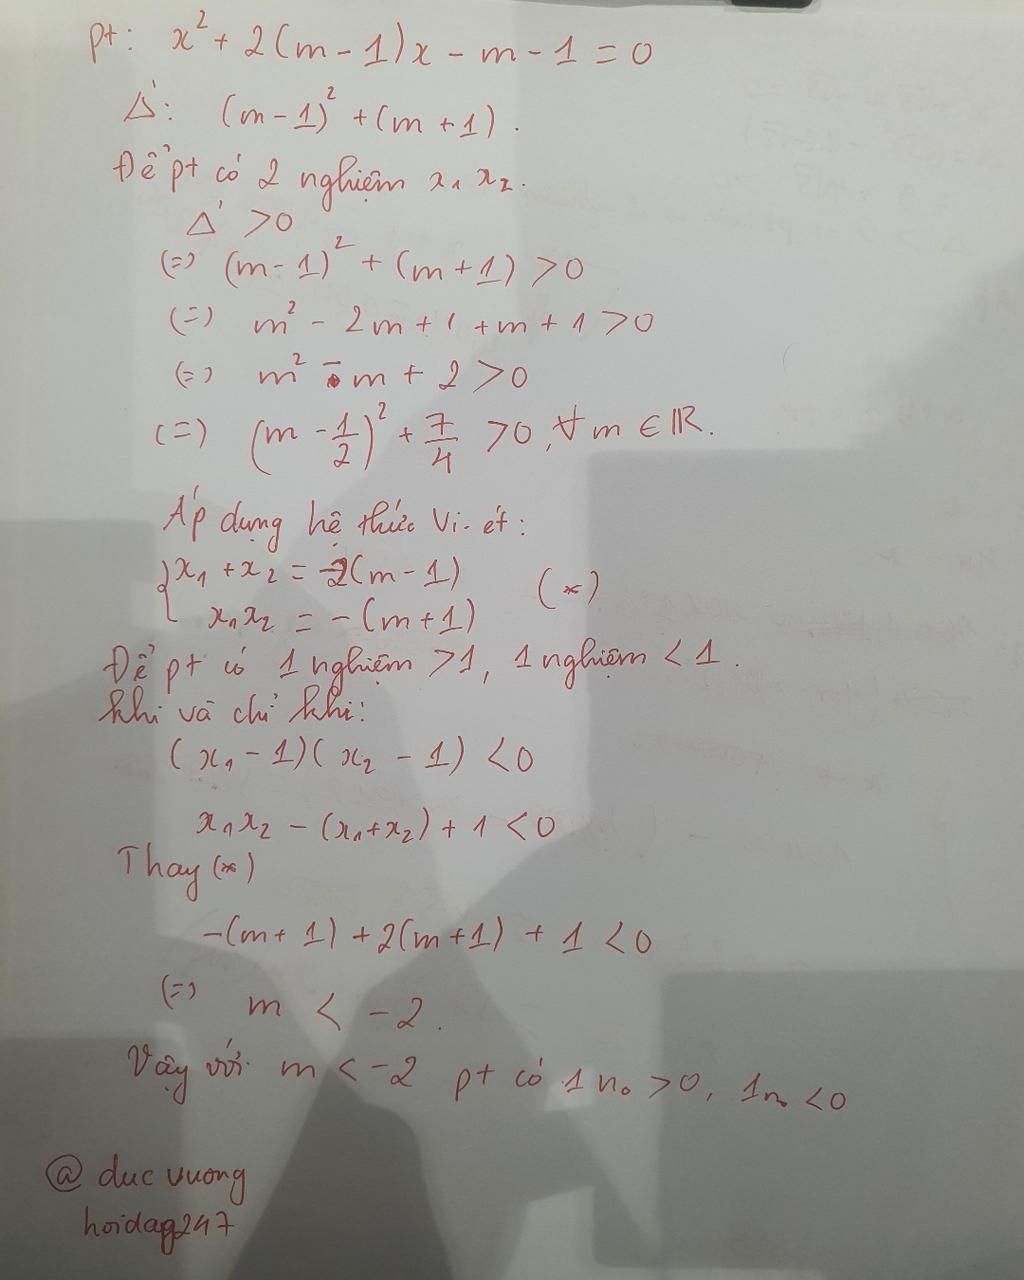 pt: x² + 2(m - 1)x - m - 1 = 0
Δ': (m - 1)² + (m + 1).
Để pt có 2 nghiệm x₁ x₂.
Δ' > 0
(=) (m - 1)² + (m + 1) > 0
(=) m² - 2m + 1 + m + 1 > 0
(=) m² - m + 2 > 0
(=) (m - 1/2)² + 7/4 > 0, ∀ m ∈ ℝ.
Áp dụng hệ thức Vi-ét:
{ x₁ + x₂ = -2(m - 1) (*)
x₁x₂ = -(m + 1)
Để pt có 1 nghiệm > 1, 1 nghiệm < 1.
khi và chỉ khi:
(x₁ - 1)(x₂ - 1) < 0
x₁x₂ - (x₁ + x₂) + 1 < 0
Thay (*)
-(m + 1) + 2(m + 1) + 1 < 0
(=) m < -2.
Vậy với m < -2 pt có 1 n₀ > 0, 1 n₀ < 0
@ duc vuong
hoidag247